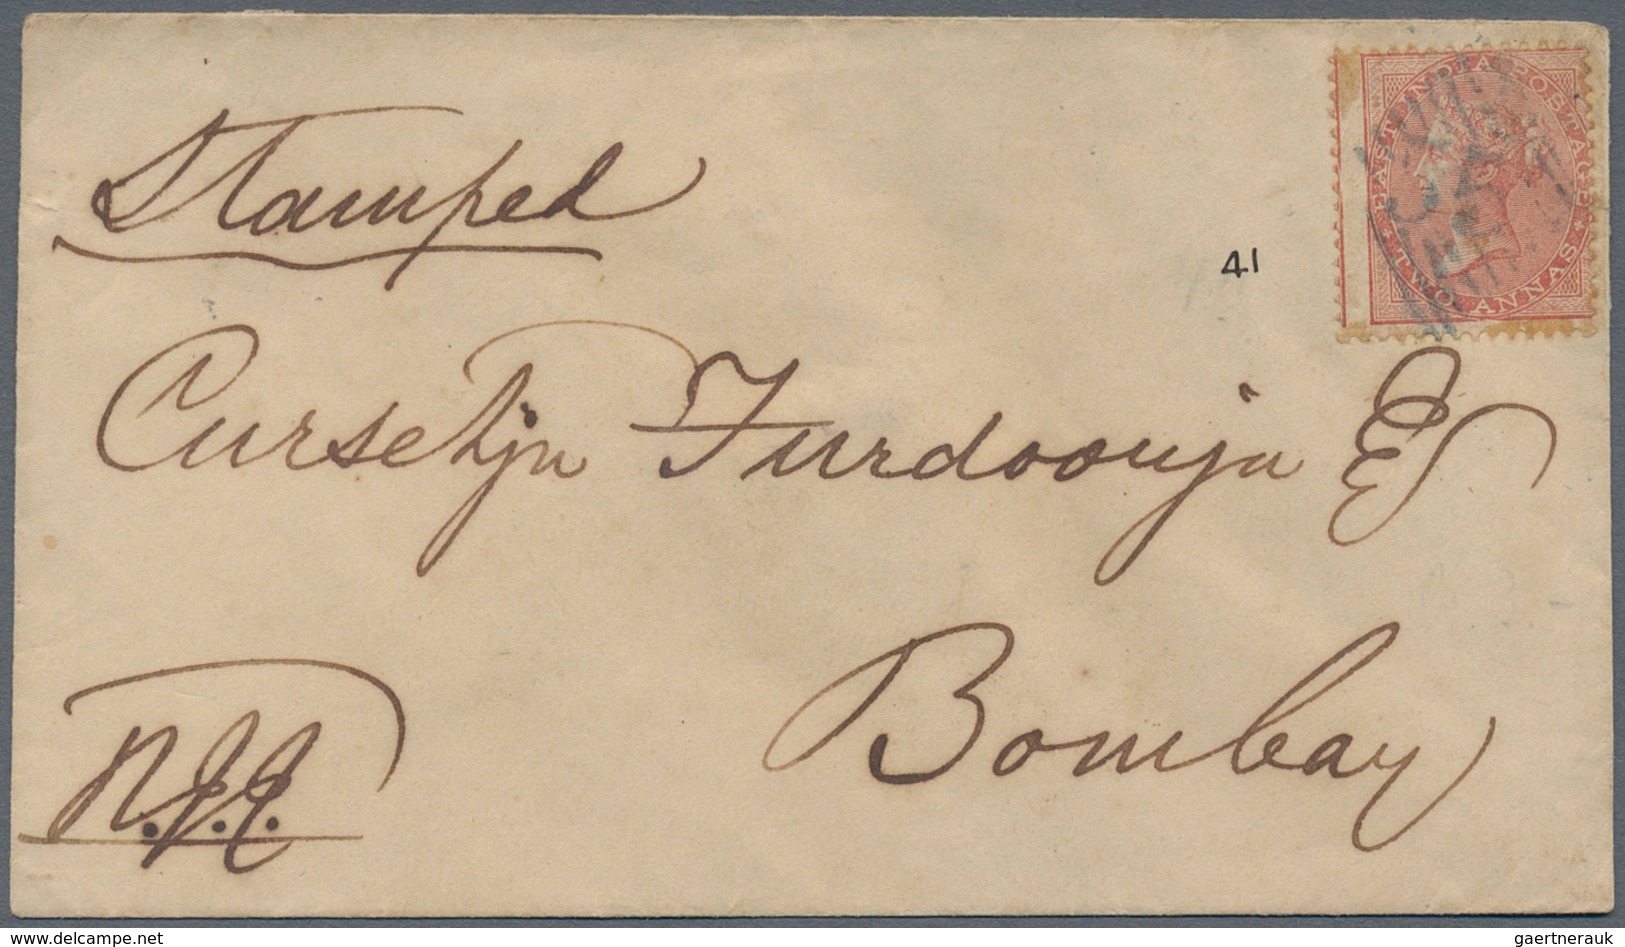 Stamped
EAST INDIA POSTAGE
TWO ANNAS
41
Cursetjee Furdoonjee Esq
Bombay
delcampe.net
gaertnerauk